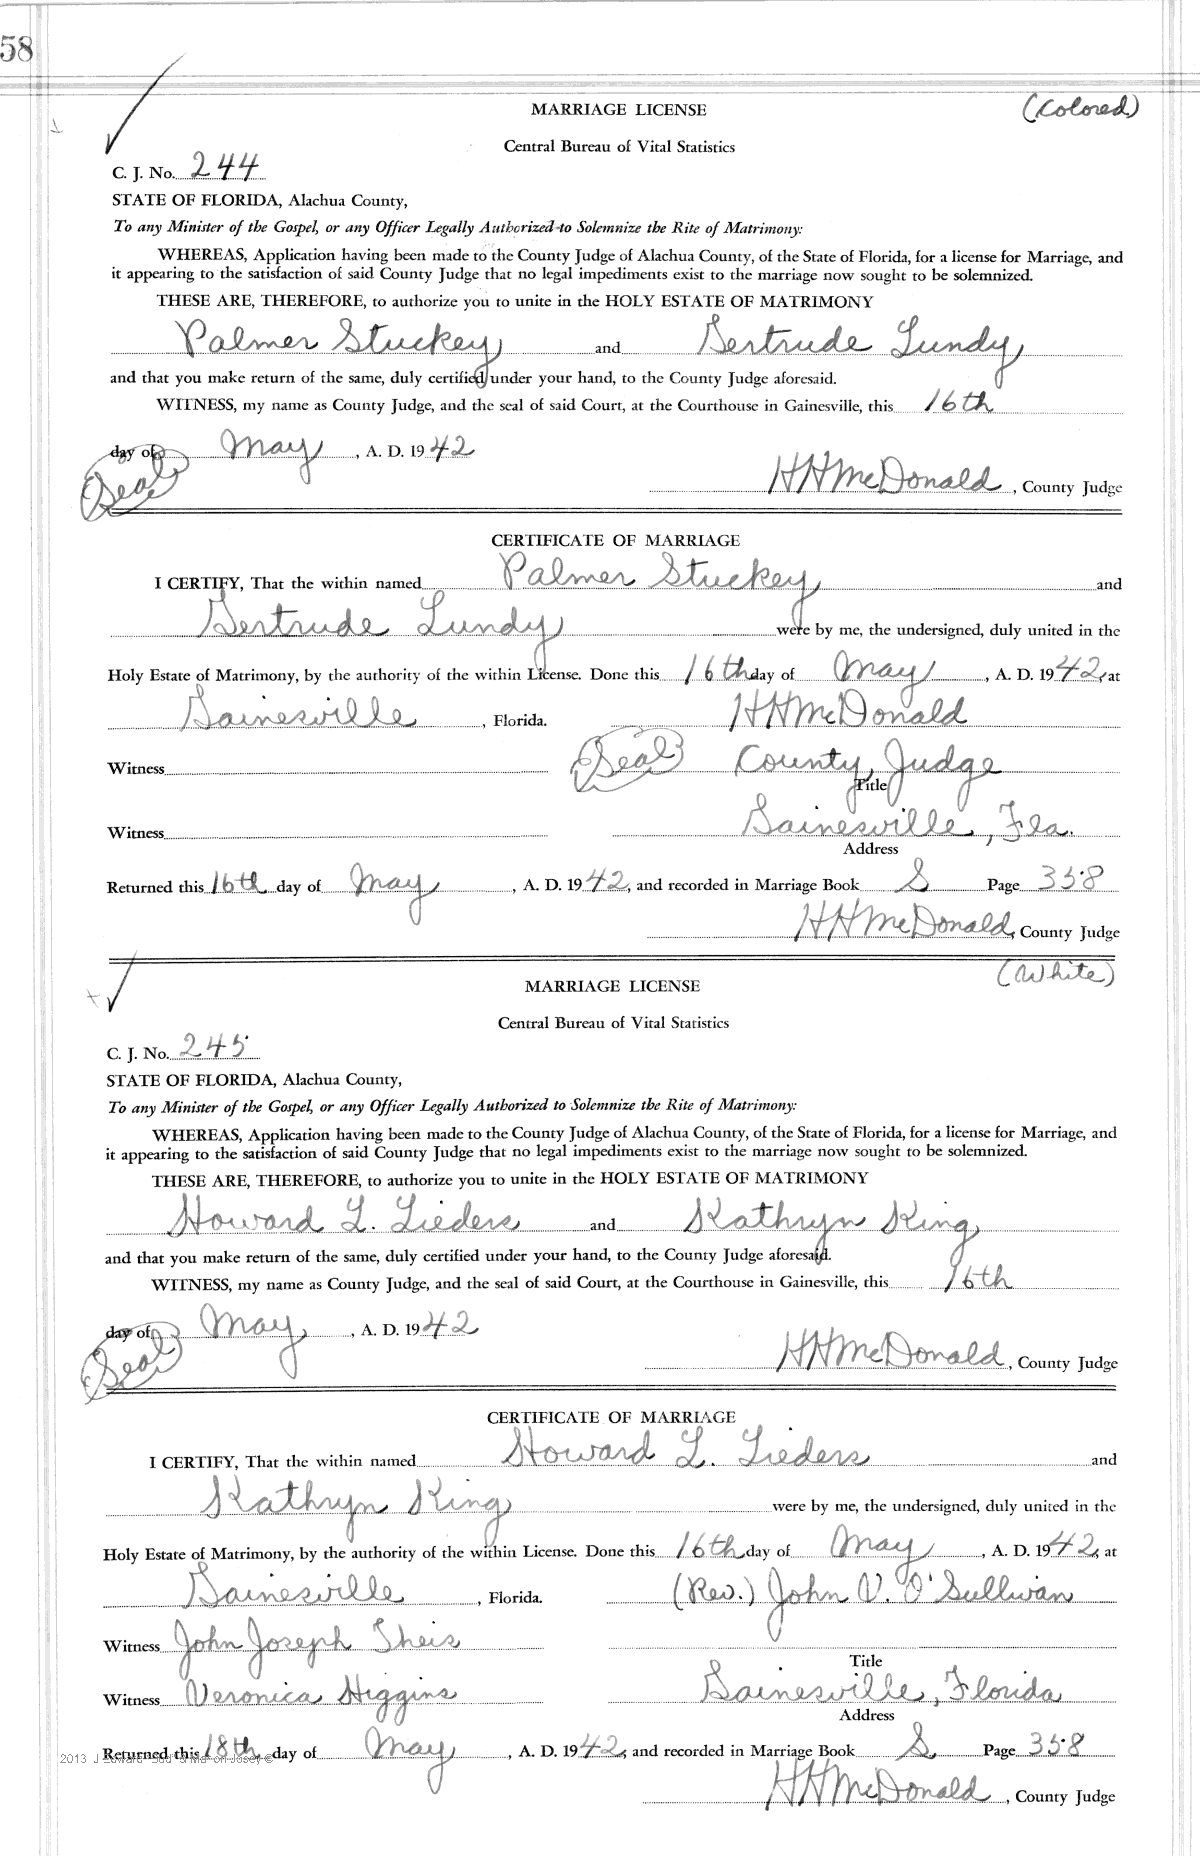 58
MARRIAGE LICENSE (Colored)
Central Bureau of Vital Statistics
C. J. No. 244
STATE OF FLORIDA, Alachua County,
To any Minister of the Gospel, or any Officer Legally Authorized to Solemnize the Rite of Matrimony:
WHEREAS, Application having been made to the County Judge of Alachua County, of the State of Florida, for a license for Marriage, and
it appearing to the satisfaction of said County Judge that no legal impediments exist to the marriage now sought to be solemnized.
THESE ARE, THEREFORE, to authorize you to unite in the HOLY ESTATE OF MATRIMONY
Palmer Stuckey and Gertrude Lundy
and that you make return of the same, duly certified under your hand, to the County Judge aforesaid.
WITNESS, my name as County Judge, and the seal of said Court, at the Courthouse in Gainesville, this 16th
day of May, A. D. 1942
(Seal) HHMcDonald, County Judge
CERTIFICATE OF MARRIAGE
I CERTIFY, That the within named Palmer Stuckey and
Gertrude Lundy were by me, the undersigned, duly united in the
Holy Estate of Matrimony, by the authority of the within License. Done this 16th day of May, A. D. 1942, at
Gainesville, Florida. HHMcDonald
Witness (Seal) County Judge
Title
Witness Gainesville, Fla.
Address
Returned this 16th day of May, A. D. 1942, and recorded in Marriage Book S Page 358
HHMcDonald, County Judge
(White)
MARRIAGE LICENSE
Central Bureau of Vital Statistics
C. J. No. 245
STATE OF FLORIDA, Alachua County,
To any Minister of the Gospel, or any Officer Legally Authorized to Solemnize the Rite of Matrimony:
WHEREAS, Application having been made to the County Judge of Alachua County, of the State of Florida, for a license for Marriage, and
it appearing to the satisfaction of said County Judge that no legal impediments exist to the marriage now sought to be solemnized.
THESE ARE, THEREFORE, to authorize you to unite in the HOLY ESTATE OF MATRIMONY
Howard L. Lieders and Kathryn King
and that you make return of the same, duly certified under your hand, to the County Judge aforesaid.
WITNESS, my name as County Judge, and the seal of said Court, at the Courthouse in Gainesville, this 16th
day of May, A. D. 1942
(Seal) HHMcDonald, County Judge
CERTIFICATE OF MARRIAGE
I CERTIFY, That the within named Howard L. Lieders and
Kathryn King were by me, the undersigned, duly united in the
Holy Estate of Matrimony, by the authority of the within License. Done this 16th day of May, A. D. 1942, at
Gainesville, Florida. (Rev.) John V. O'Sullivan
Witness John Joseph Theis
Title
Witness Veronica Higgins Gainesville, Florida
Address
Returned this 18th day of May, A. D. 1942, and recorded in Marriage Book S Page 358
2013 J
HHMcDonald, County Judge